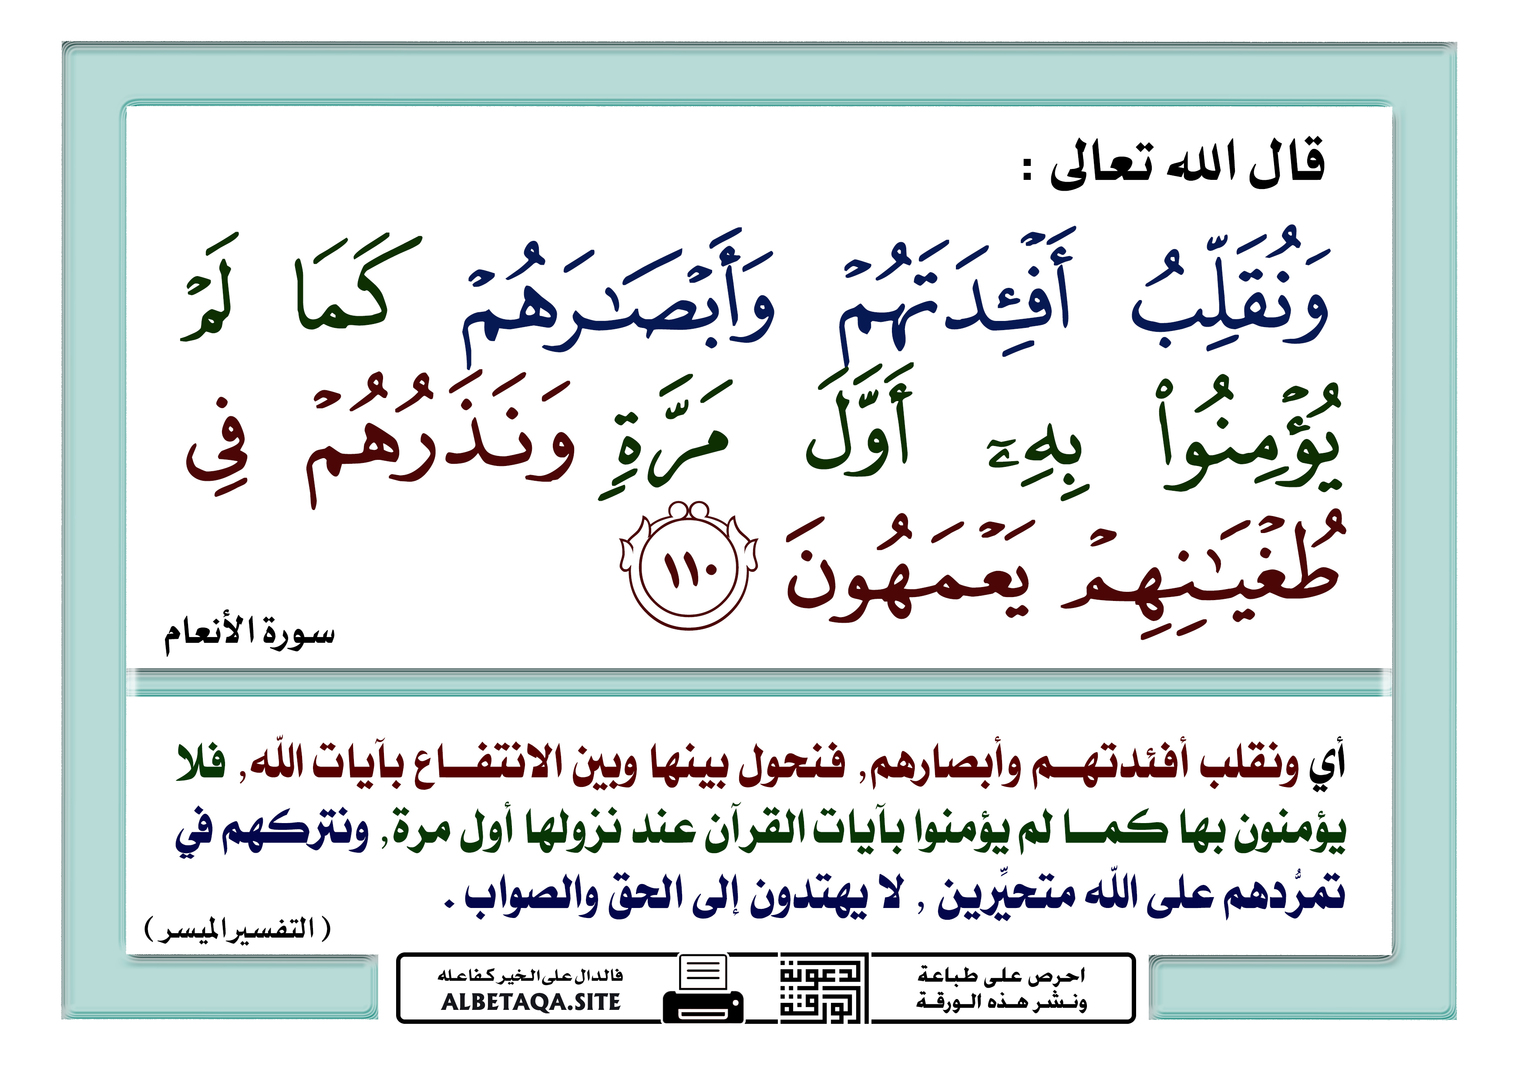 قال الله تعالى :
وَنُقَلِّبُ أَفْـِٔدَتَهُمْ وَأَبْصَـٰرَهُمْ كَمَا لَمْ
يُؤْمِنُوا۟ بِهِۦٓ أَوَّلَ مَرَّةٍ وَنَذَرُهُمْ فِى
طُغْيَـٰنِهِمْ يَعْمَهُونَ ١١٠
سورة الأنعام
أي ونقلب أفئدتهــم وأبصارهم, فنحول بينها وبين الانتفــاع بآيات اللّه, فلا
يؤمنون بها كمــا لم يؤمنوا بآيات القرآن عند نزولها أول مرة, ونتركهم في
تمرُّدهم على اللّه متحيِّرين , لا يهتدون إلى الحق والصواب .
( التفسير الميسر )
احرص على طباعة
ونشر هذه الورقة
الدعوية
الورقة
فالدال على الخير كفاعله
ALBETAQA.SITE